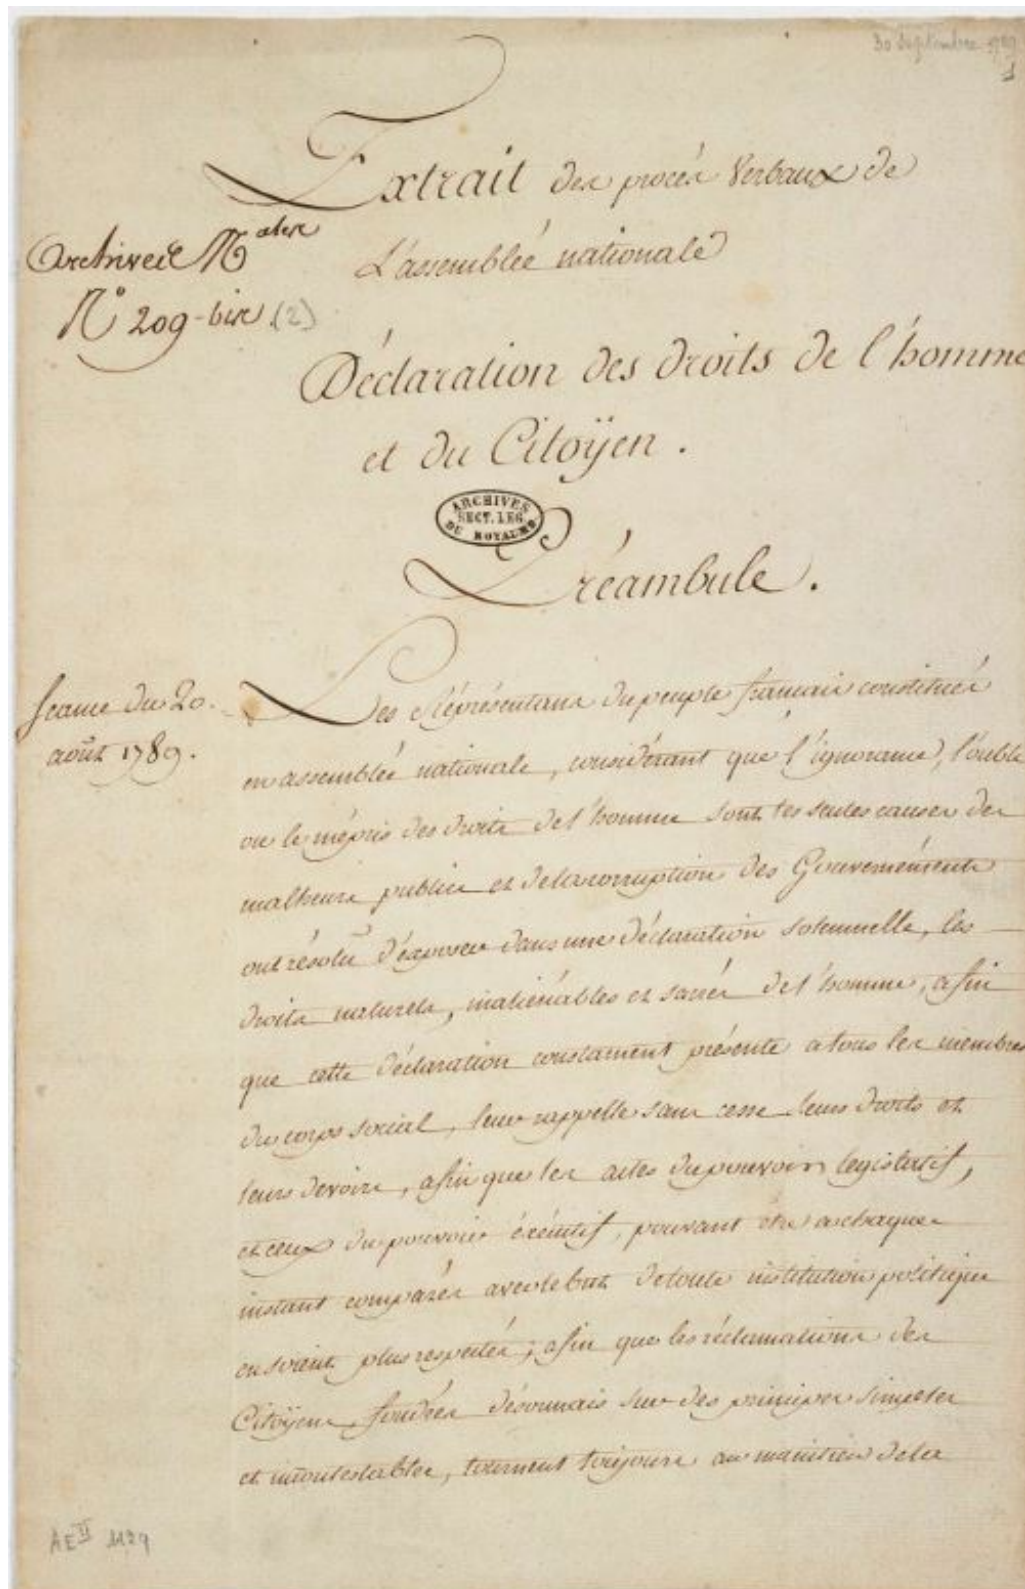 30 Septembre 1789
1
Extrait des procés Verbaux de
L'assemblée nationale
archives Nales
N° 209-bis (2)
Déclaration des droits de l'homme
et du Citoÿen.
ARCHIVES
SECT. LEG.
DU ROYAUME
Préambule.
Seance du 20.
août 1789.
Les Réprésentans du peuple francais constitués
en assemblée nationale, considérant que l'ignorance, l'oubli
ou le mépris des droits de l'homme sont les seules causes des
malheurs publics et de la corruption des Gouvernéments
ont résolu d'éxposer dans une déclaration solemnelle, les
droits naturels, inaliénables et sacrés de l'homme, afin
que cette déclaration constament présente a tous les membres
du corps social, leur rappelle sans cesse leurs droits et
leurs devoirs, afin que les actes du pouvoir legislatif,
et ceux du pouvoir éxécutif, pouvant être a chaque
instant comparés avec le but de toute institution politique
en soient plus respectés; afin que les réclamations des
Citoÿens, fondées désormais sur des principes simples
et incontestables, tournent toujours au maintien de la
AE II 1129